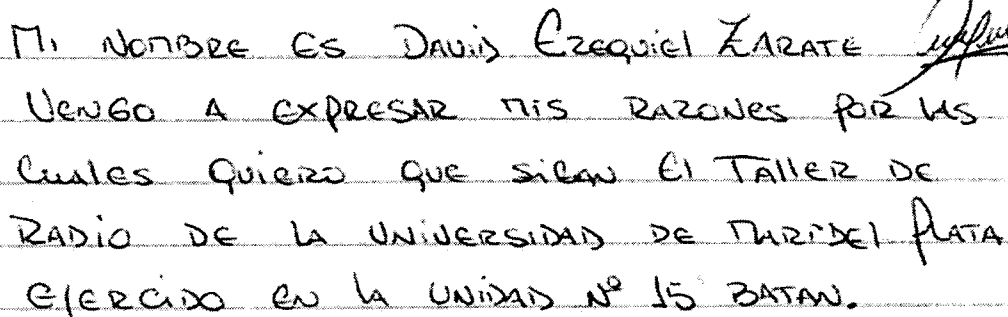 Mi NOMBRE ES DAVID EZEQUIEL ZARATE
VENGO A EXPRESAR MIS RAZONES POR LAS
CUALES QUIERO QUE SIGAN EL TALLER DE
RADIO DE LA UNIVERSIDAD DE MAR DEL PLATA
EJERCIDO EN LA UNIDAD Nº 15 BATAN.